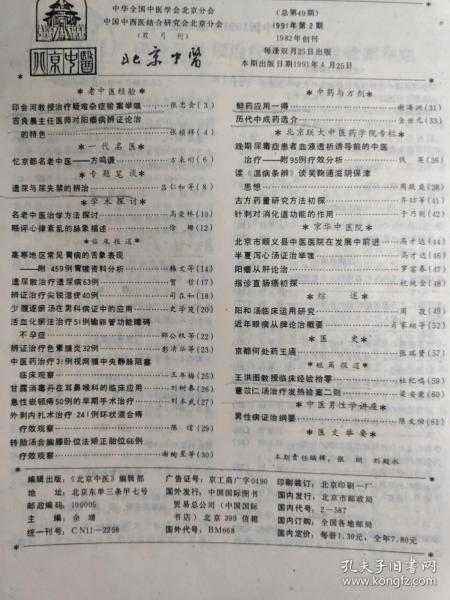 中华全国中医学会北京分会
中国中西医结合研究会北京分会
(双月刊)
北京中医
北京中医
(总第49期)
1991年第2期
1982年创刊
每逢双月25日出版
本期出版日期1991年4月25日
*老中医经验*
印会河教授治疗疑难杂症验案举隅……张忠会(3)
吉良晨主任医师对阳痿病辨证论治
的特色……张根祥(4)
*一代名医*
忆京都名老中医——方鸣谦……方永刚(6)
*专题笔谈*
遗尿与尿失禁的辨治……吕仁和等(8)
*学术探讨*
名老中医治学方法探讨……高爱林(10)
略评心律紊乱的脉象描述……徐姗(12)
*临床报道*
高寒地区常见胃病的舌象表现
——附459例胃镜资料分析……韩文等(14)
遗尿散治疗遗尿病63例……贺哲(17)
辨证治疗尖锐湿疣40例……司在和(18)
少腹逐瘀汤在男科病证中的应用……史学茂(20)
活血化瘀法治疗51例输卵管功能障碍
不孕症……部公权等(22)
辨证治疗色素膜炎32例……彭清华等(23)
中医药治疗31例视网膜中央静脉阻塞
临床观察……王年梅(25)
甘露消毒丹在耳鼻喉科的临床应用……刘树春(26)
急性嵌顿痔50例的早期手术治疗……刘本武(27)
外剥内扎术治疗241例环状混合痔
疗效观察……陈煌(29)
转胎汤合胸膝卧位法矫正胎位66例
疗效观察……谢绚星等(30)
*中药与方剂*
鲜药应用一得……谢海洲(31)
历代中成药选介……金世元(33)
*北京联大中医药学院专栏*
晚期尿毒症患者血液透析诱导前的中医
治疗——附95例疗效分析……钱英(36)
读《温病条辨》谈吴鞠通滋阴保津
思想……周殿庭(38)
古方药量研究方法初探……齐昉等(41)
针刺对消化道功能的作用……于乃明(42)
*京华中医院*
北京市顺义县中医医院在发展中前进……高才达(44)
半夏泻心汤证治举隅……高才达(46)
阳痿从肝论治……罗富荣(47)
指诊直肠癌初探……杭晓金(48)
*综述*
阳和汤临床运用研究……周教(49)
近年眼病从脾论治概要……肖家翔等(52)
*医史*
京都何处药王庙……张瑞贤(55)
*短篇报道*
王洪图教授临床经验拾零……杜松鸣(60)
薏苡仁汤治疗发热验案二则……梁安荣(60)
*中医男性学讲座*
男性病证治纲要……陈文伯(61)
*医文举要*
本期责任编辑：张硕 刘殿永
编辑出版：《北京中医》编辑部
地址：北京东单三条甲七号
邮政编码：100005
主编：佘靖
统一刊号：CN11—2258
广告证号：京工商广字0490
国外发行：中国国际图书
贸易总公司(中国国际
书店)北京399信箱
国外代号：BM668
印刷装订：北京印刷一厂
国内发行：北京市邮政局
国内代号：2—587
国内订购：全国各地邮局
国内定价：每册1.30元，全年7.80元
孔夫子旧书网